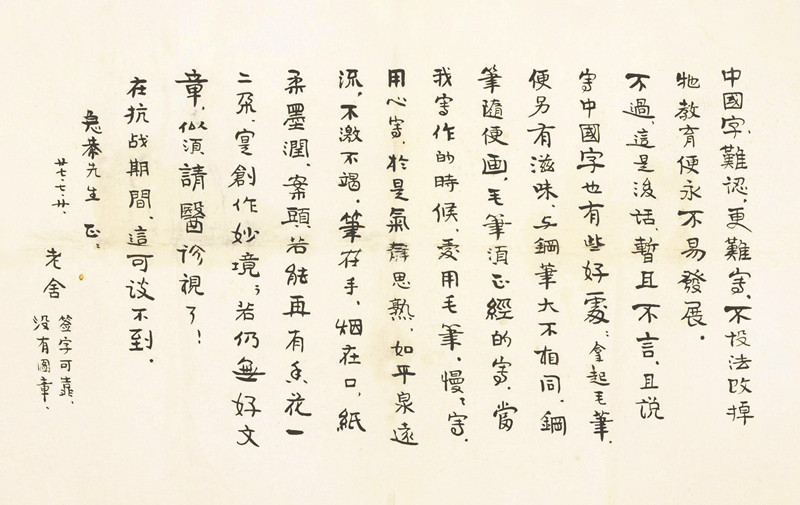 中國字、難認、更難寫、不設法改掉
牠教育便永不易發展。
不過、這是後话、暫且不言、且说
寫中國字也有些好處：拿起毛筆、
便另有滋味、与鋼筆大不相同、鋼
筆隨便画、毛筆須正經的寫、當
我寫作的時候、愛用毛筆、慢慢寫、
用心寫、於是氣靜思熟、如平泉遠
流、不激不竭、筆在手、烟在口、紙
柔墨潤、案頭若能再有香花一
二朶、寔創作妙境；若仍無好文
章、似須請醫诊視了！
在抗战期間、這可谈不到。
先生 正：
廿七、七、廿、
老舍
签字可靠、
没有圖章、